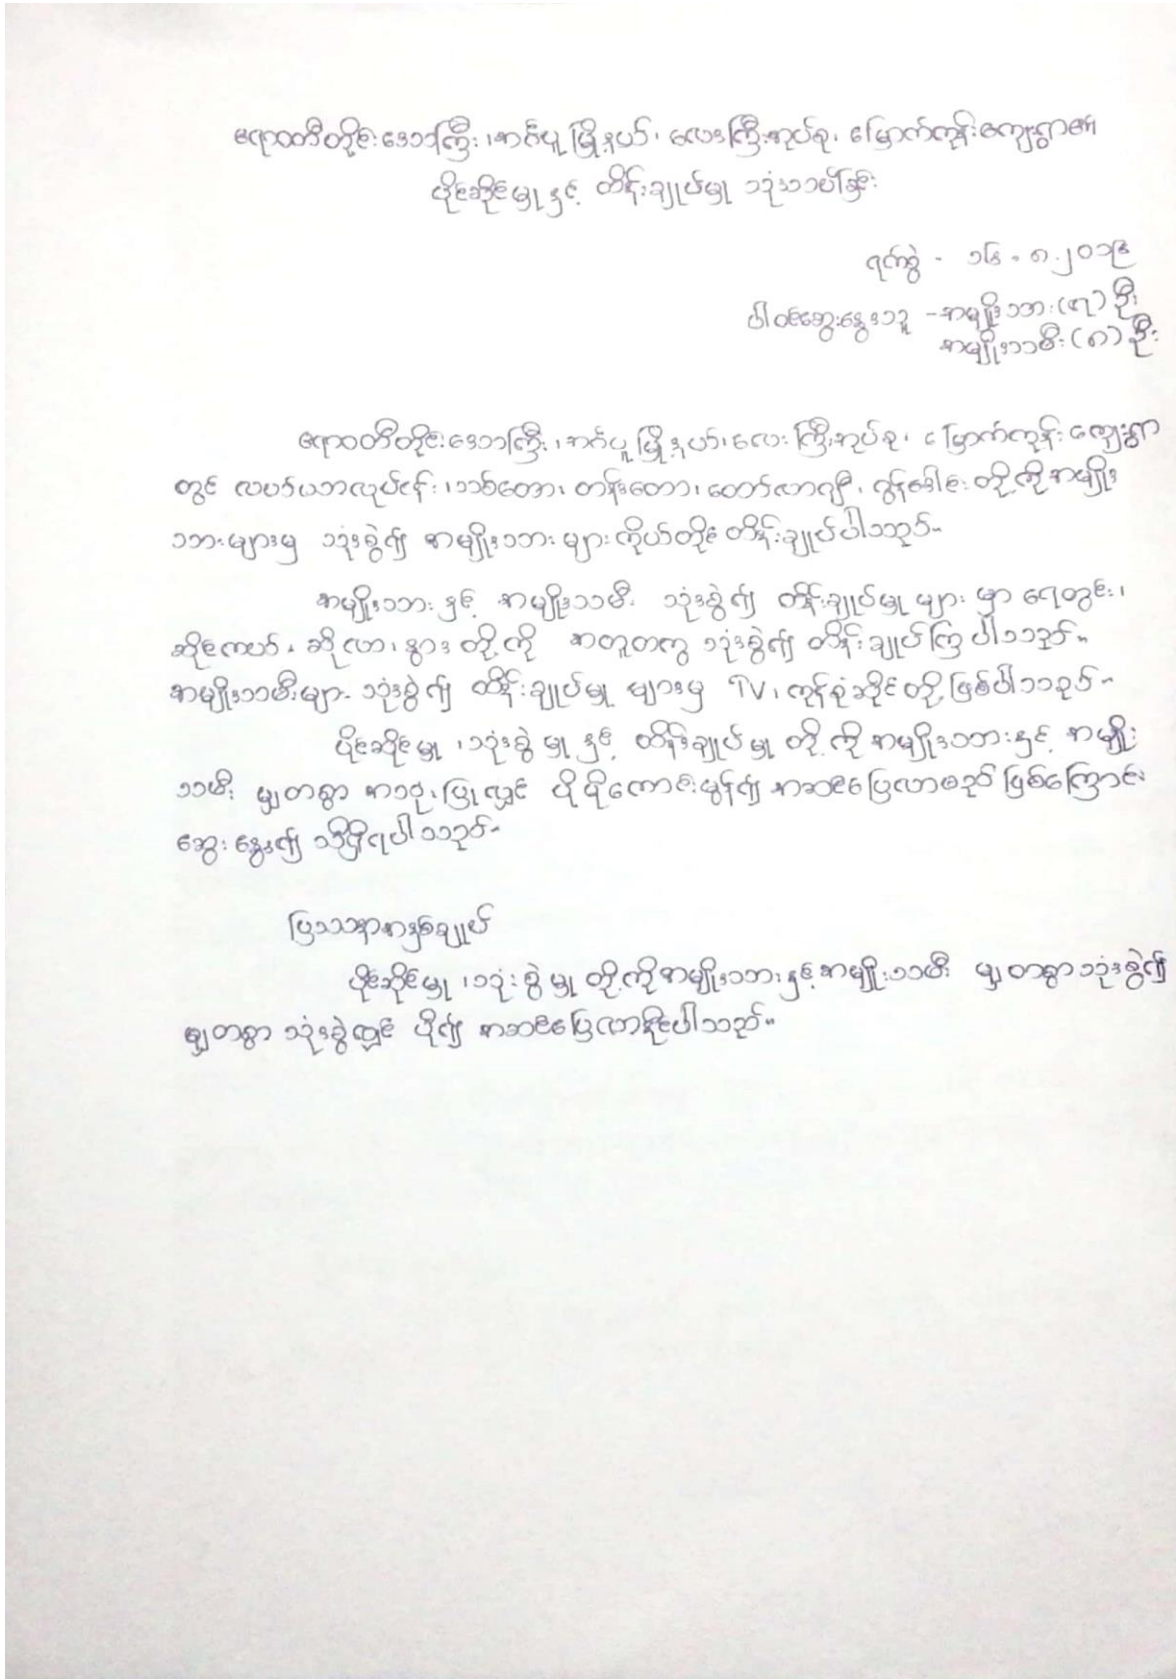 ဧရာဝတီတိုင်းဒေသကြီး၊ အင်္ဂပူမြို့နယ်၊ လေးကြီးအုပ်စု၊ မြောက်ကုန်းကျေးရွာ၏
ပိုင်ဆိုင်မှုနှင့် ထိန်းချုပ်မှု သုံးသပ်ခြင်း
ရက်စွဲ - ၁၆.၈.၂၀၁၉
ပါဝင်ဆွေးနွေးသူ - အမျိုးသား (၇) ဦး
အမျိုးသမီး (၈) ဦး
ဧရာဝတီတိုင်းဒေသကြီး၊ အင်္ဂပူမြို့နယ်၊ လေးကြီးအုပ်စု၊ မြောက်ကုန်းကျေးရွာ
တွင် လယ်ယာလုပ်ငန်း၊ သစ်တော၊ တန်းတော၊ တော်လာဂျီ၊ ဂွန်ဒေါင်း တို့ကို အမျိုး
သားများမှ သုံးစွဲ၍ အမျိုးသားများကိုယ်တိုင် ထိန်းချုပ်ပါသည်။
အမျိုးသားနှင့် အမျိုးသမီး သုံးစွဲ၍ ထိန်းချုပ်မှုများမှာ ရေတွင်း၊
ဆိုင်ကယ်၊ ဆိုလာ၊ နွား တို့ကို အတူတကွ သုံးစွဲ၍ ထိန်းချုပ်ကြပါသည်။
အမျိုးသမီးများ သုံးစွဲ၍ ထိန်းချုပ်မှုများမှ TV၊ ကုန်စုံဆိုင်တို့ဖြစ်ပါသည်။
ပိုင်ဆိုင်မှု၊ သုံးစွဲမှုနှင့် ထိန်းချုပ်မှုတို့ကို အမျိုးသားနှင့် အမျိုး
သမီး မျှတစွာ အသုံးပြုလျှင် ပိုပိုကောင်းမွန်၍ အဆင်ပြေလာမည်ဖြစ်ကြောင်း
ဆွေးနွေး၍ သိရှိရပါသည်။
ပြဿနာအနှစ်ချုပ်
ပိုင်ဆိုင်မှု၊ သုံးစွဲမှုတို့ကို အမျိုးသားနှင့် အမျိုးသမီး မျှတစွာသုံးစွဲ၍
မျှတစွာ သုံးစွဲလျှင် ပို၍ အဆင်ပြေလာနိုင်ပါသည်။